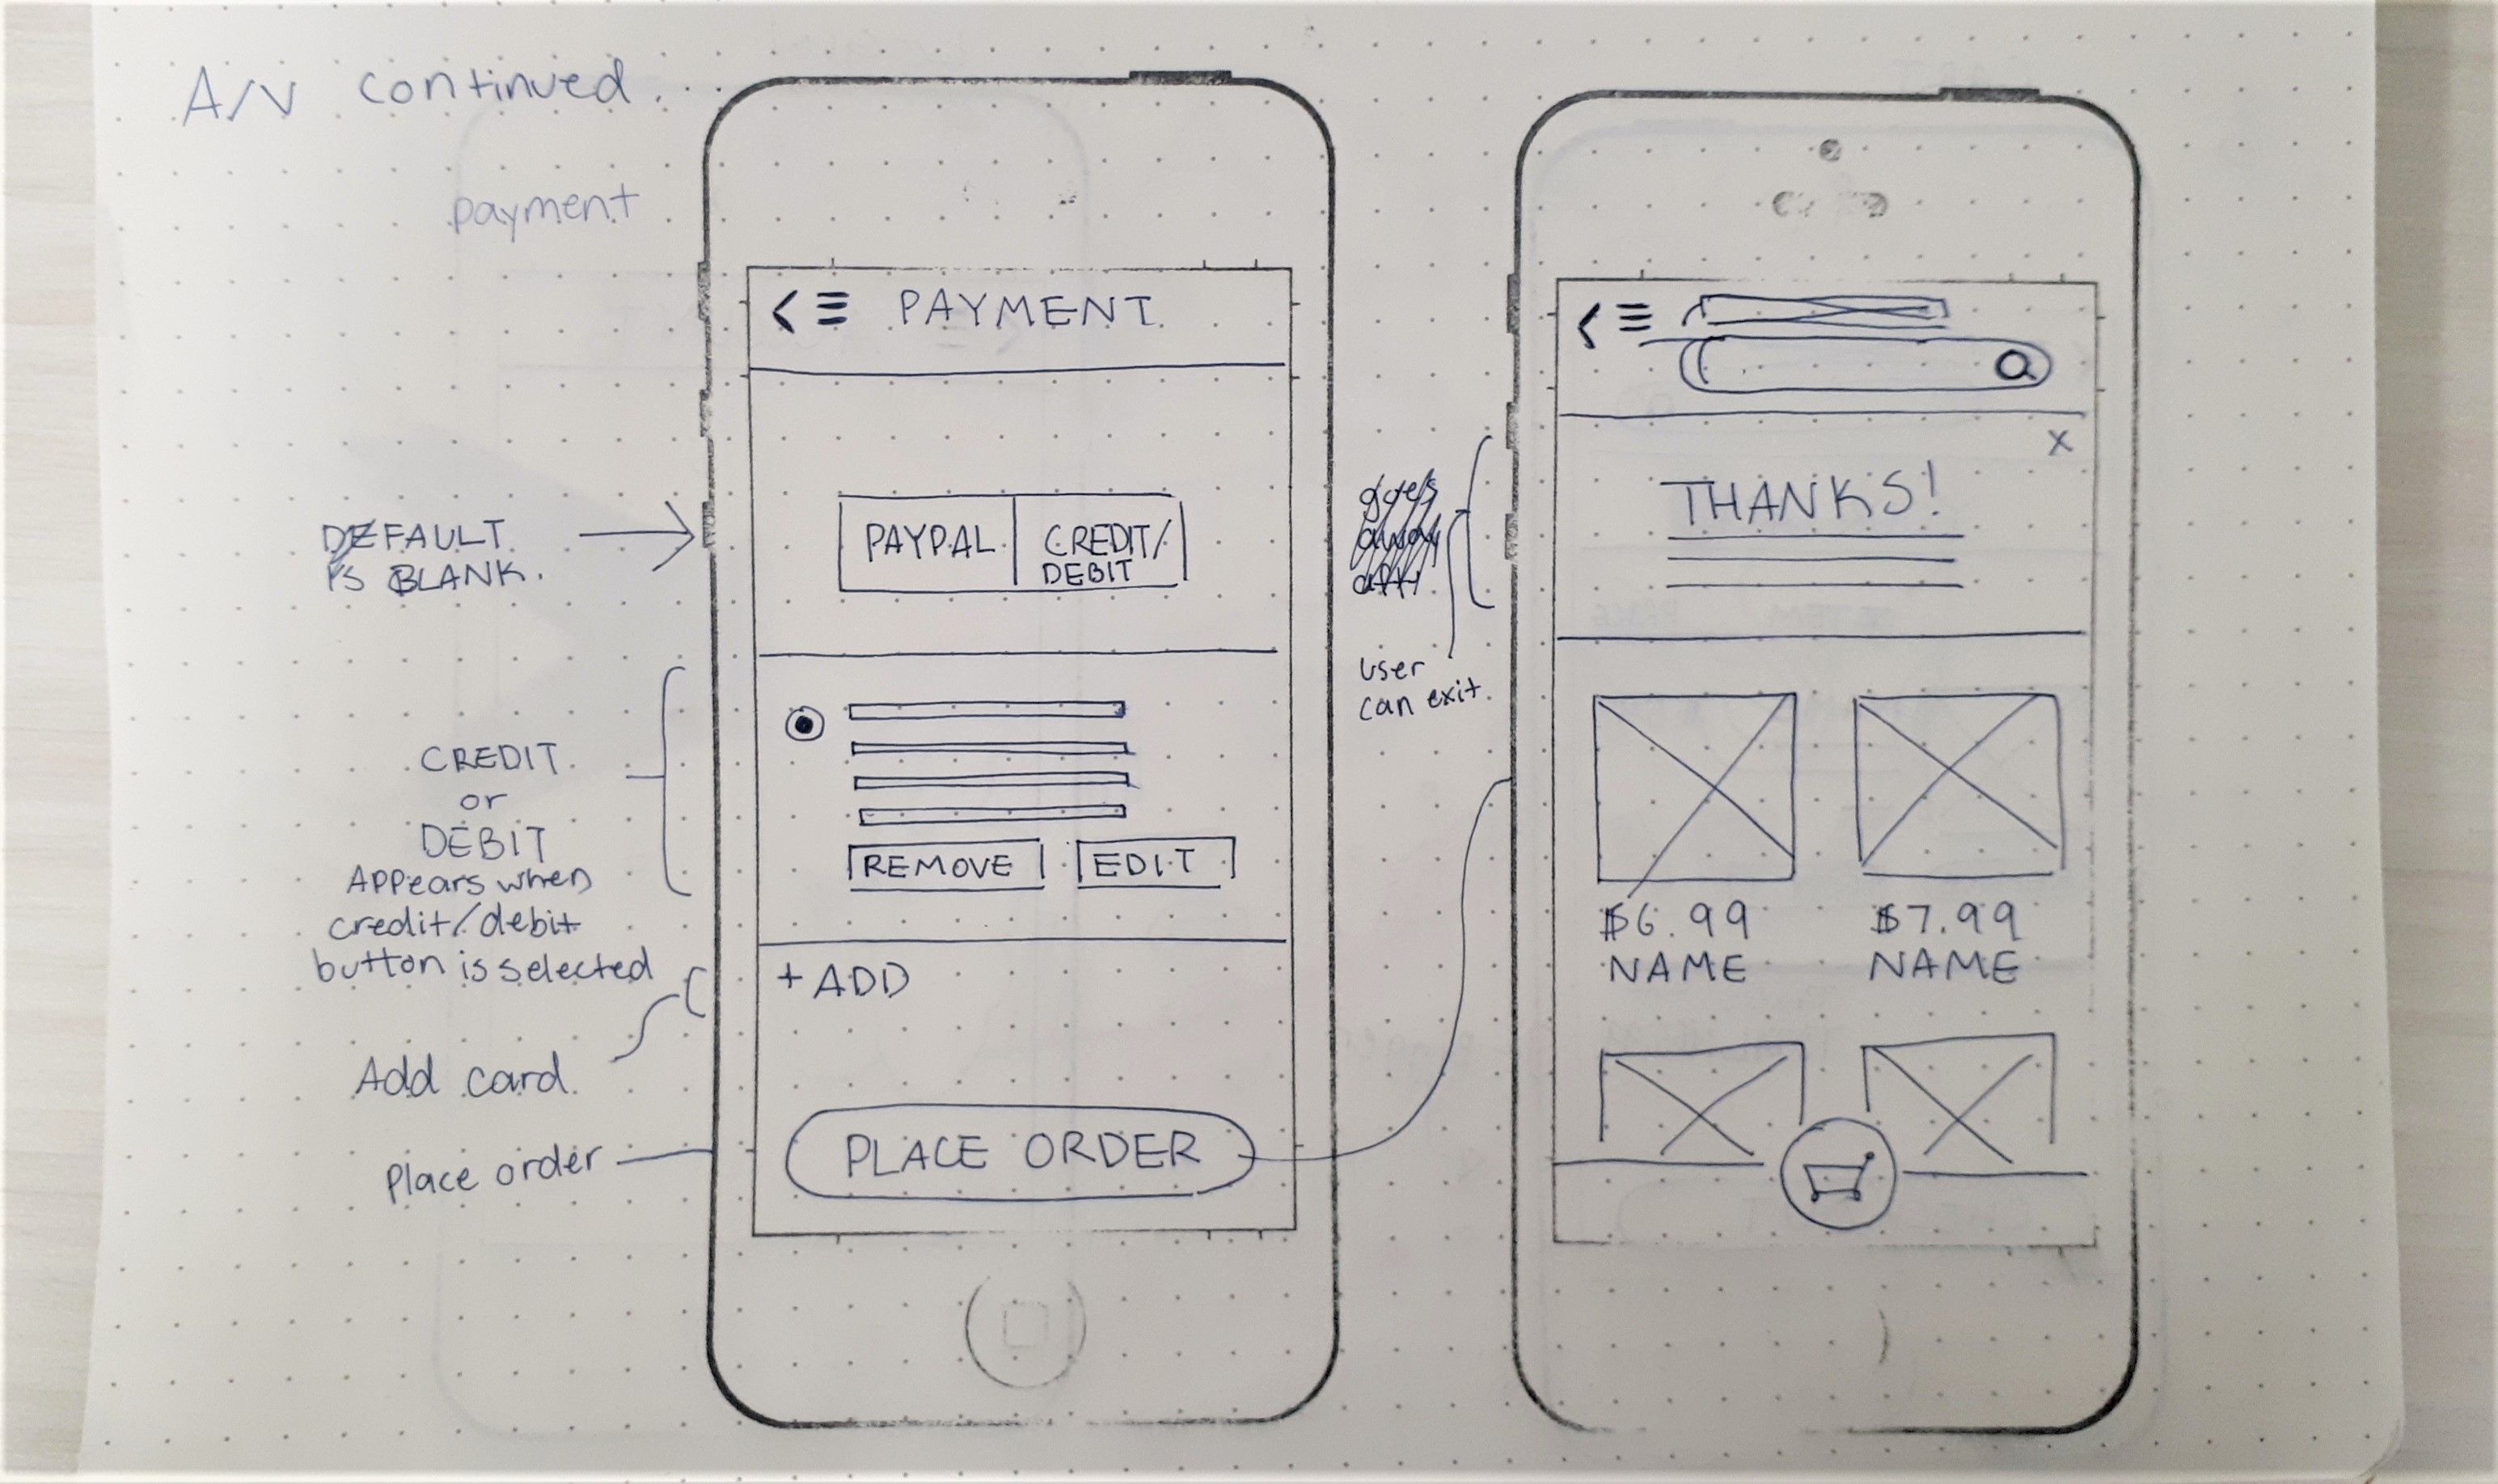 A/V continued.
payment
DEFAULT
IS BLANK.
CREDIT
or
DEBIT
Appears when
credit/debit
button is selected
Add card.
Place order
PAYMENT
PAYPAL
CREDIT/
DEBIT
REMOVE
EDIT
+ ADD
PLACE ORDER
goes
away
user
can exit.
X
THANKS!
$6.99
NAME
$7.99
NAME